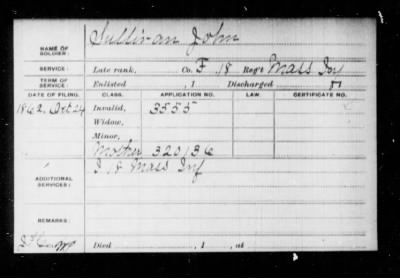 NAME OF SOLDIER: Sullivan John
SERVICE: Late rank, Co. F, 18 Reg't Mass Inf
TERM OF SERVICE: Enlisted , 1 Discharged
DATE OF FILING. CLASS. APPLICATION NO. LAW. CERTIFICATE NO.
1862, Oct 24 Invalid, 3555
Widow,
Minor,
Mother 320136
ADDITIONAL SERVICES: I 18 Mass Inf
REMARKS:
Died , 1 , at